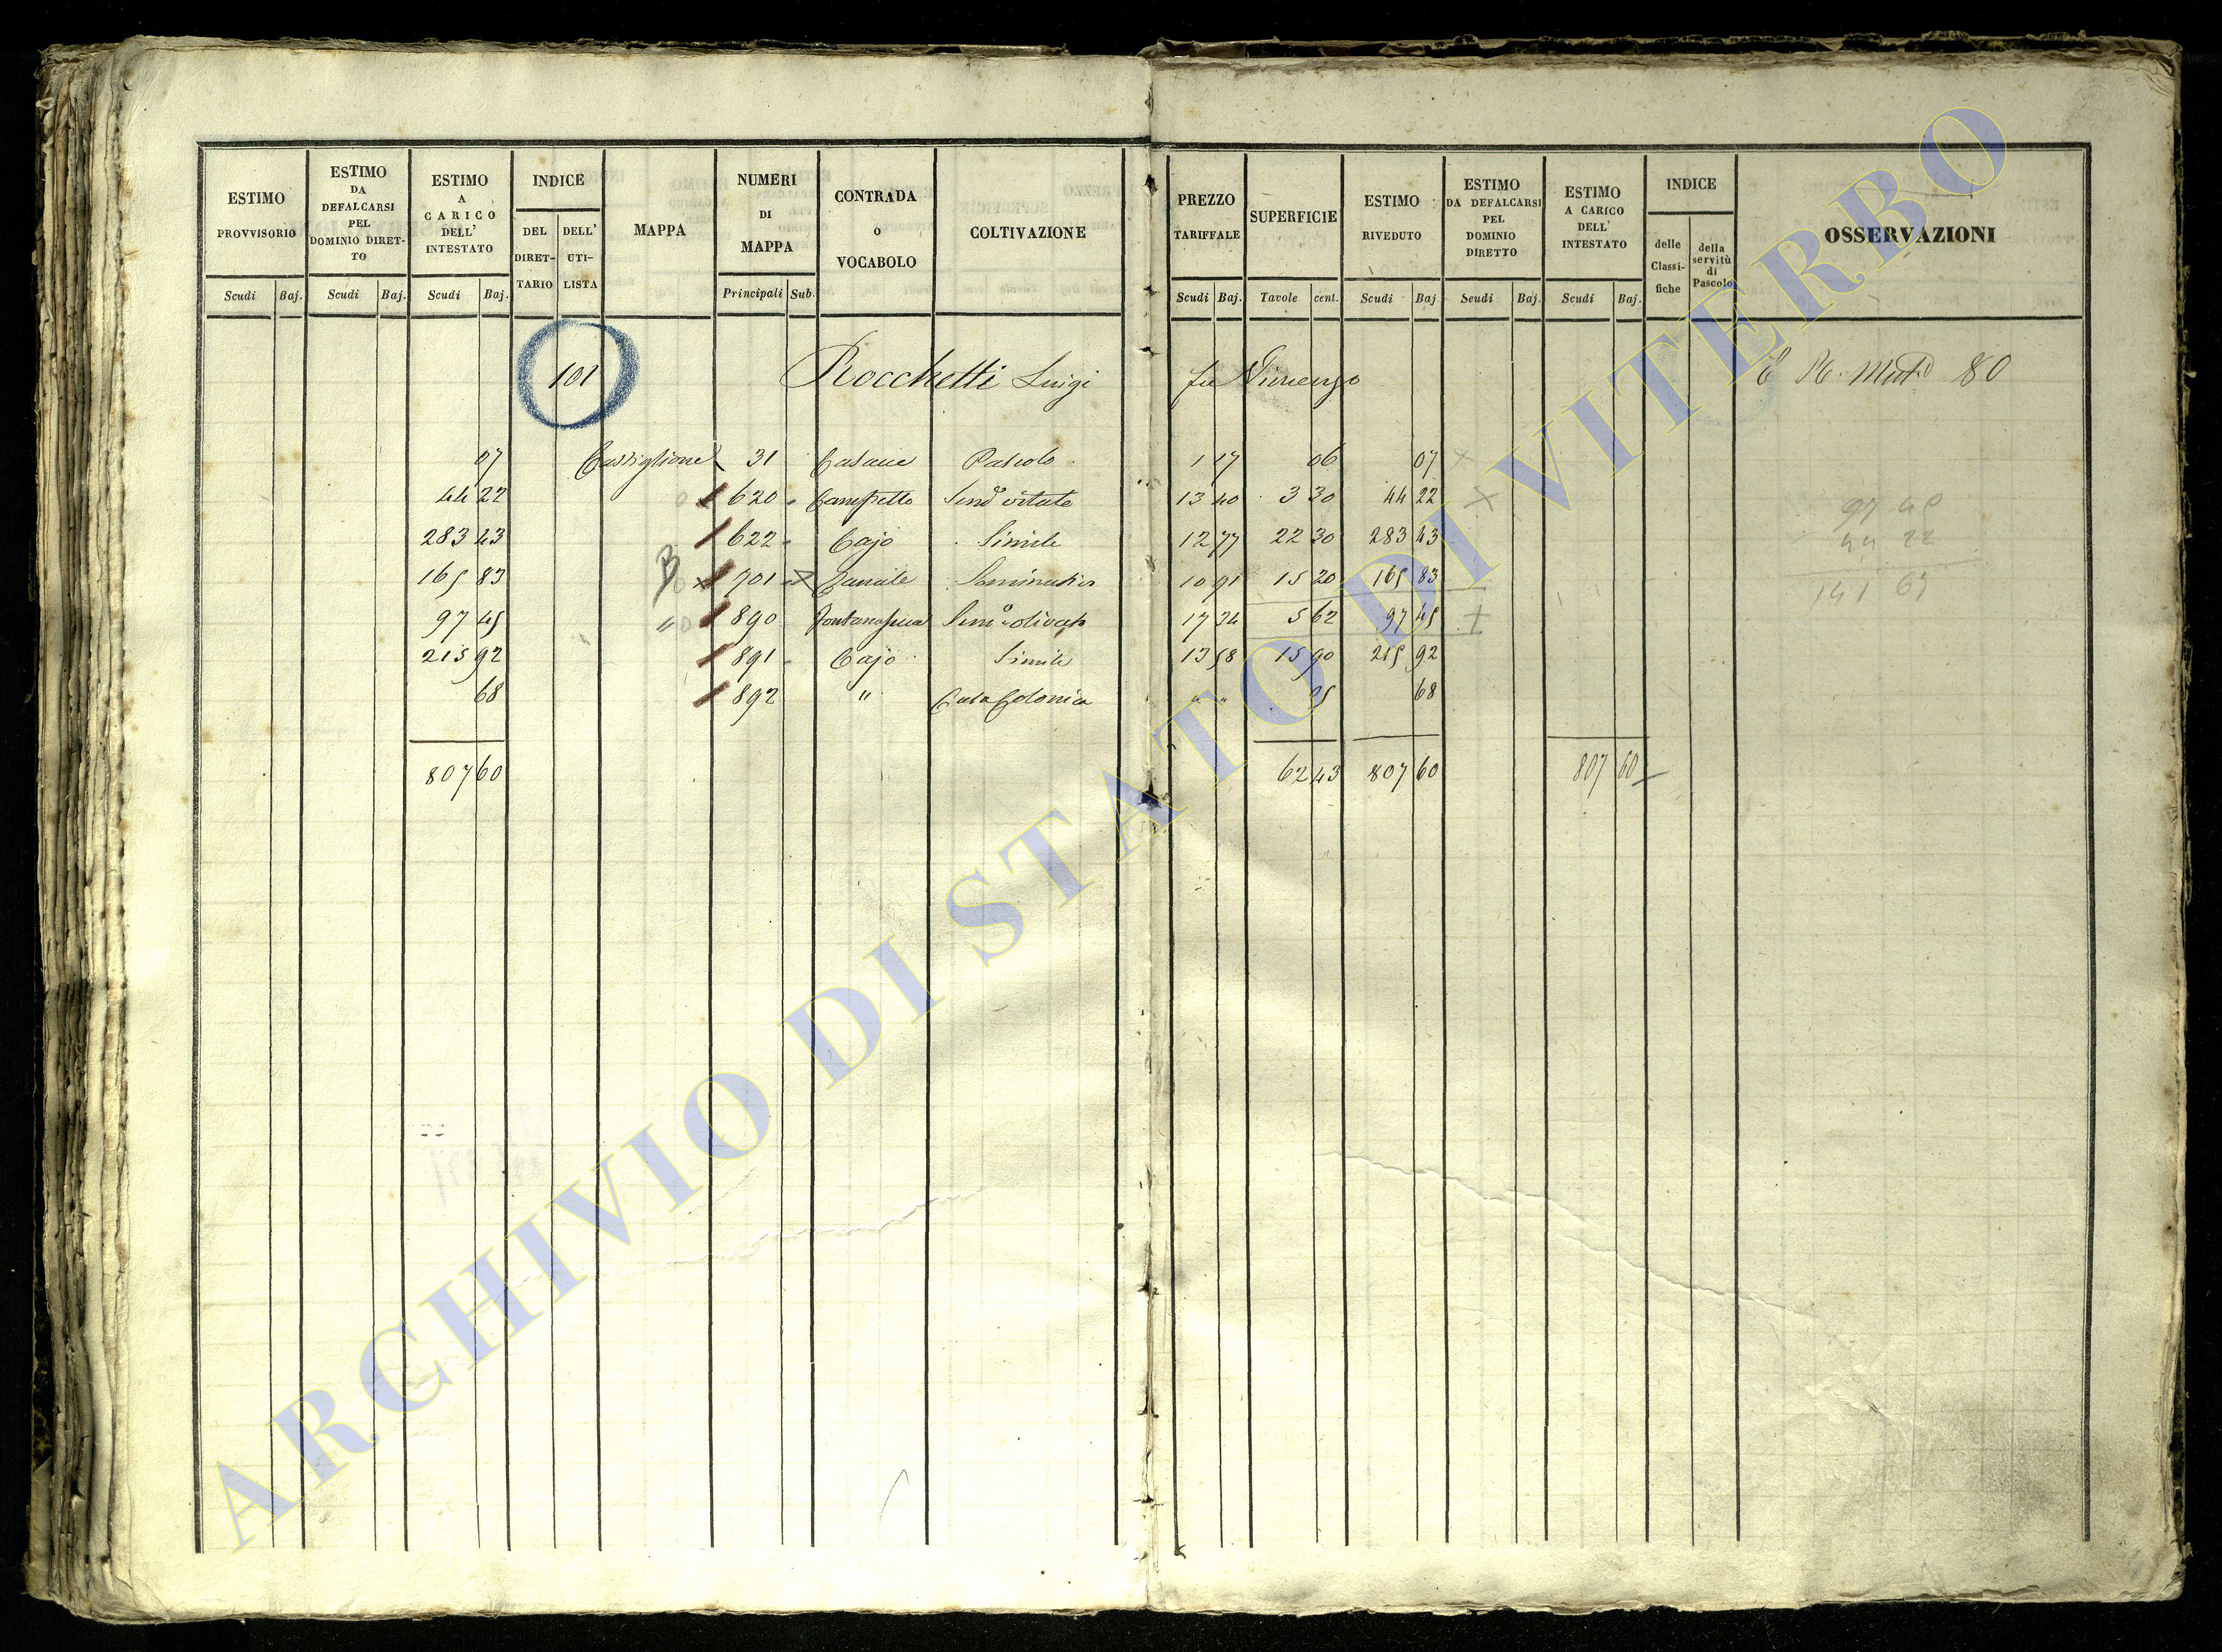 ESTIMO PROVVISORIO Scudi Baj.
ESTIMO DA DEFALCARSI PEL DOMINIO DIRET-TO Scudi Baj.
ESTIMO A CARICO DELL' INTESTATO Scudi Baj.
INDICE DEL DIRET-TARIO DELL' UTI-LISTA
MAPPA
NUMERI DI MAPPA Principali Sub.
CONTRADA o VOCABOLO
COLTIVAZIONE
PREZZO TARIFFALE Scudi Baj.
SUPERFICIE Tavole cent.
ESTIMO RIVEDUTO Scudi Baj.
ESTIMO DA DEFALCARSI PEL DOMINIO DIRETTO Scudi Baj.
ESTIMO A CARICO DELL' INTESTATO Scudi Baj.
INDICE delle Classi-fiche della servitù di Pascolo
OSSERVAZIONI
101 Rocchetti Luigi fu Vincenzo 80
07 Castiglione 31 Pascolo 1 17 06 07
44 22 620 Campetto Semo vitato 13 40 3 30 44 22
283 43 622 Cajo Simile 12 77 22 30 283 43
165 83 701 Seminativo 10 91 15 20 165 83
97 45 890 Semo olivato 17 34 5 62 97 45
215 92 891 Cajo Simile 13 58 15 90 215 92
68 892 " Casa Colonica " " 05 68
807 60 62 43 807 60 807 60
97 45
44 22
141 67
ARCHIVIO DI STATO DI VITERBO